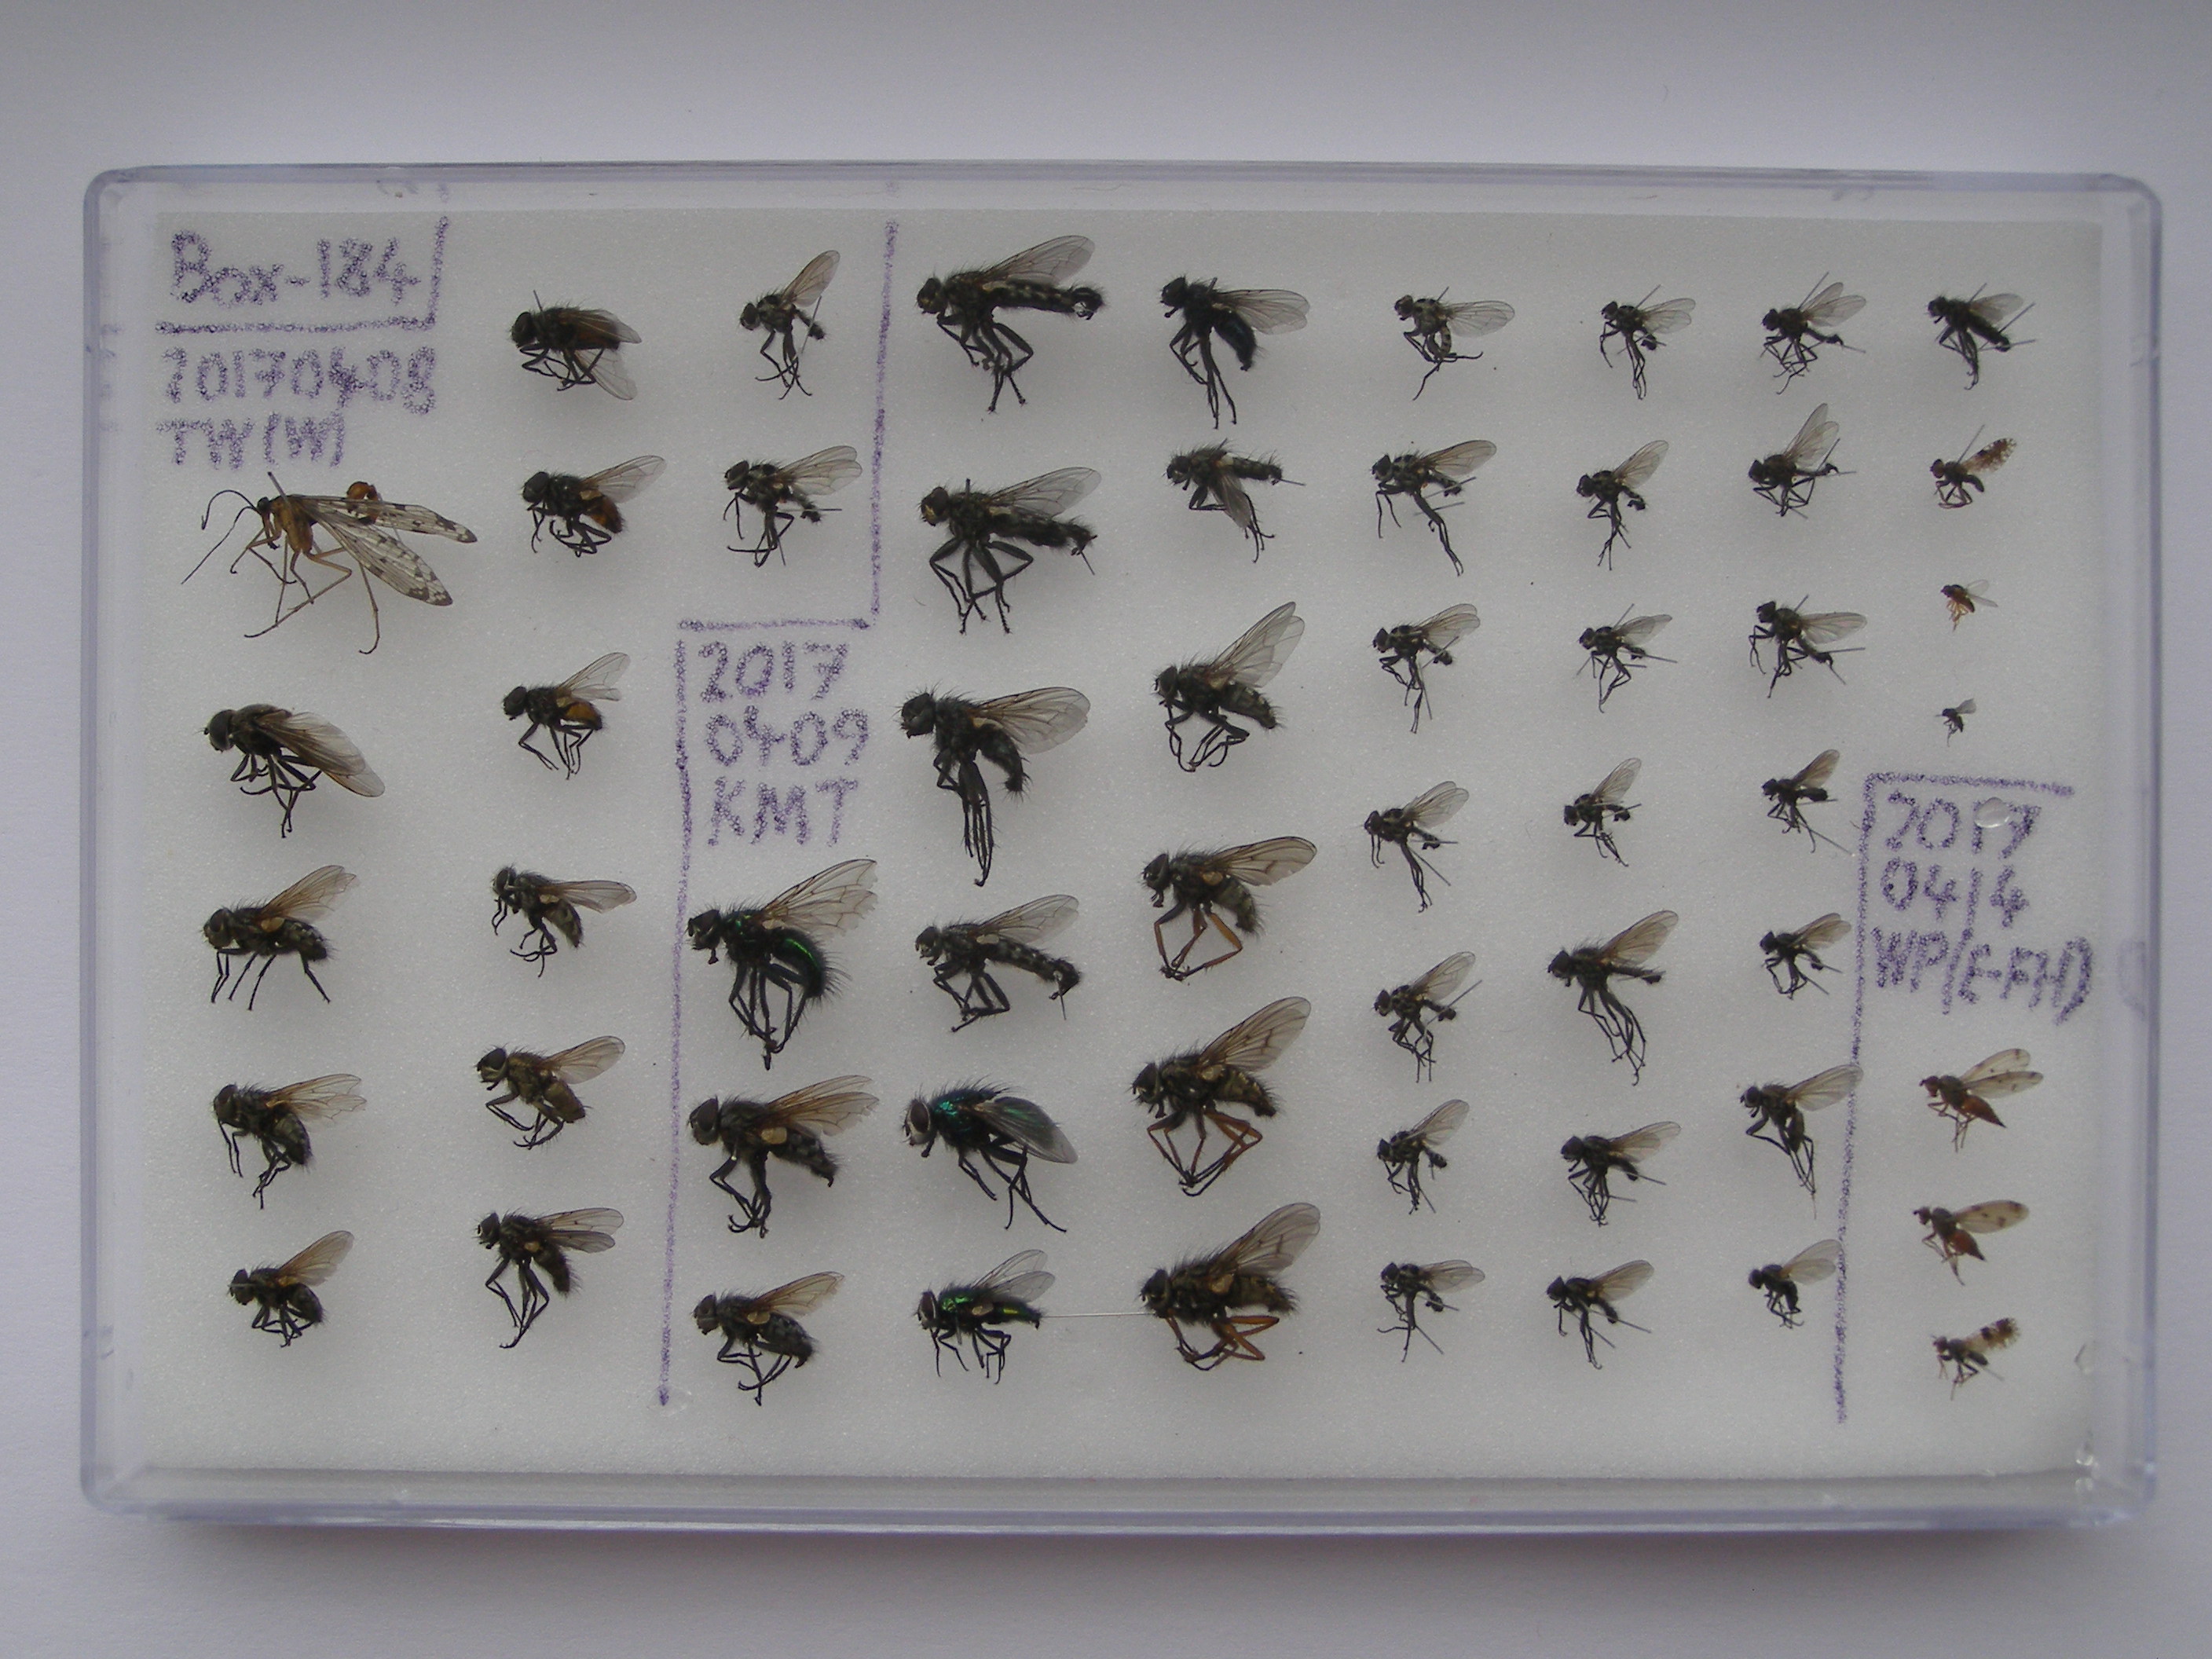 Box-184
20170408
TW(W)
2017
0409
KMT
2017
0414
WP(E-FH)